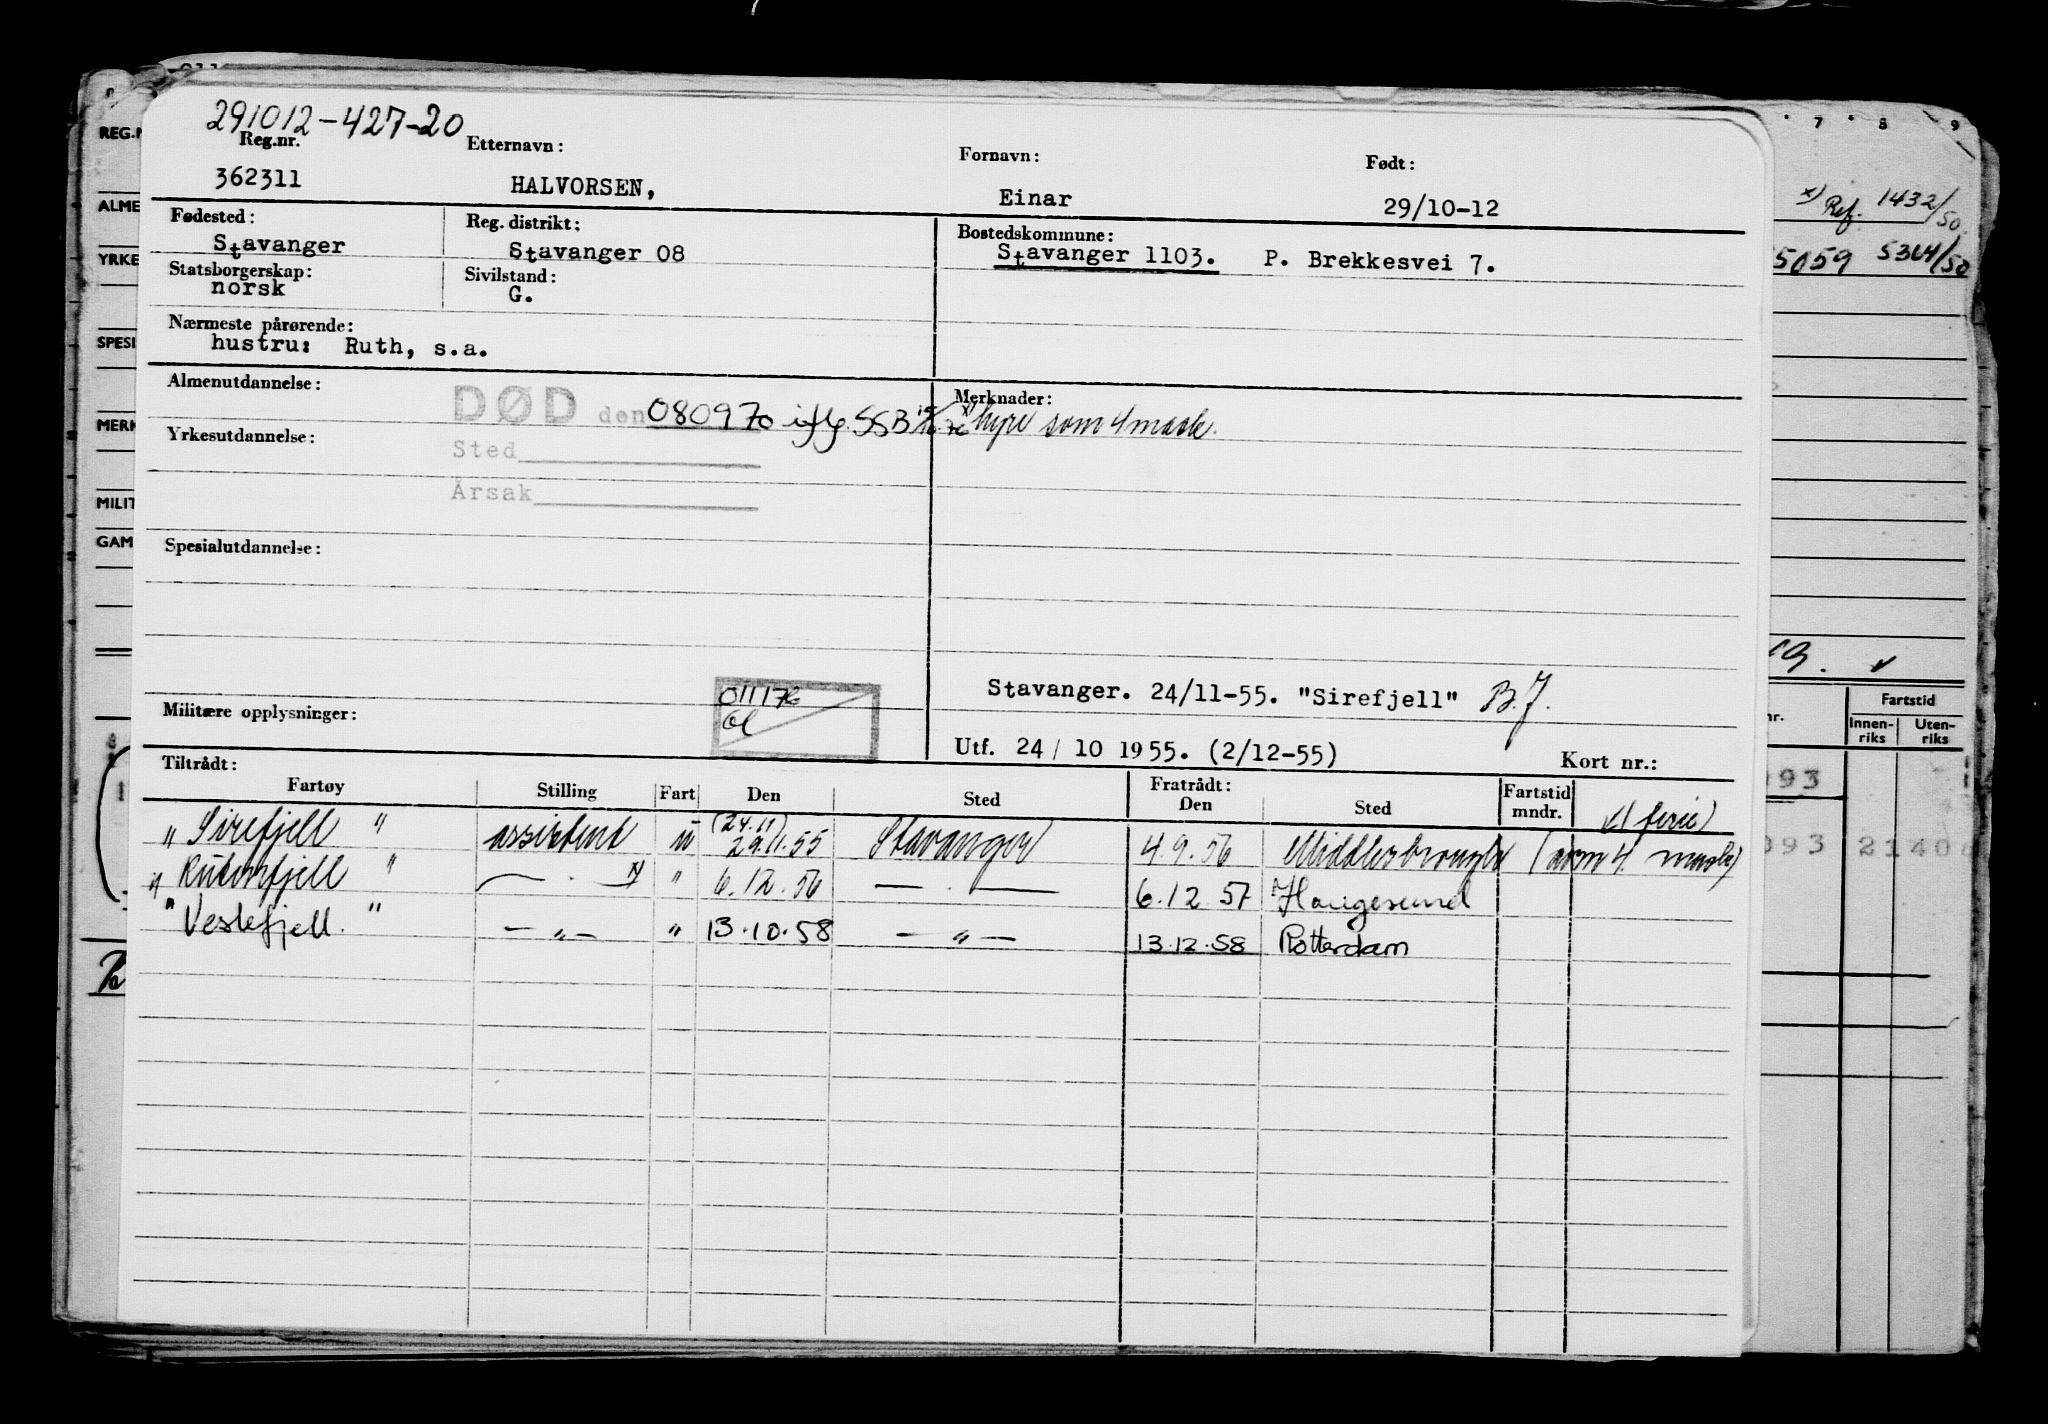 291012-427-20
Reg.nr. Etternavn: Fornavn: Født:
362311 HALVORSEN, Einar 29/10-12
Fødested: Reg. distrikt: Bostedskommune:
Stavanger Stavanger 08 Stavanger 1103. P. Brekkesvei 7.
Statsborgerskap: Sivilstand:
norsk G.
Nærmeste pårørende:
hustru: Ruth, s.a.
Almenutdannelse: Merknader:
DØD den 080970 iflg. SSB x) hyre som 4 mask.
Yrkesutdannelse:
Sted
Årsak
Spesialutdannelse:
011176
Stavanger. 24/11-55. "Sirefjell" B.J.
Militære opplysninger:
Utf. 24/10 1955. (2/12-55) Kort nr.:
Tiltrådt: Fratrådt:
Fartøy Stilling Fart Den Sted Den Sted Fartstid mndr.
x) ferie)
"Sirefjell" assistent u (24.11) 29.11.55 Stavanger 4.9.56 Middlesbrough (som 4. mask)
"Rubinfjell" — . — x) " 6.12.56 — . — 6.12.57 Haugesund
"Vestefjell." — " — " 13.10.58 — " — 13.12.58 Rotterdam
REG.N
ALME
YRKE
SPESI
MERK
MILIT
GAM
7 8 9
x) Ref. 1432/50
5059 5364/50
19. v
Fartstid
nr. Innen-riks Uten-riks
093
093 2140